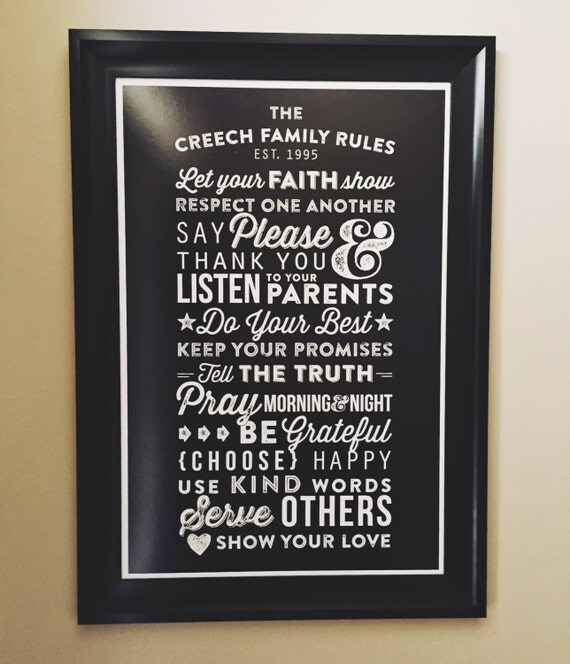 THE
CREECH FAMILY RULES
EST. 1995
Let your FAITH show
RESPECT ONE ANOTHER
SAY Please &
THANK YOU
LISTEN TO YOUR PARENTS
Do Your Best
KEEP YOUR PROMISES
Tell THE TRUTH
Pray MORNING & NIGHT
BE Grateful
{CHOOSE} HAPPY
USE KIND WORDS
Serve OTHERS
SHOW YOUR LOVE